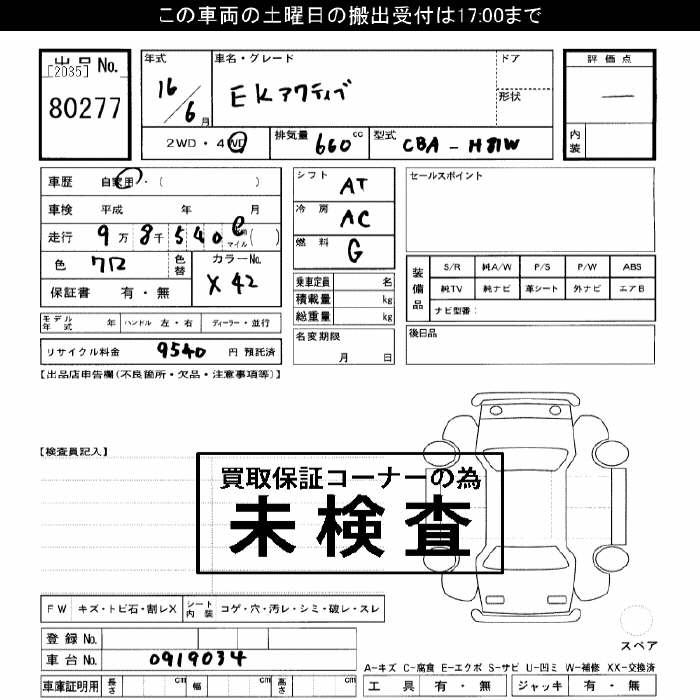 この車両の土曜日の搬出受付は17:00まで
出品 No.
[2035]
80277
年式
16/6月
車名・グレード
EKアクティブ
ドア
形状
評価点
—
内装
2WD・4WD
排気量 660 cc
型式 CBA-H81W
車歴 自家用・( )
車検 平成 年 月
走行 9万8千540
マイル( )
色 クロ
色替
カラーNo.
X42
保証書 有・無
シフト AT
冷房 AC
燃料 G
乗車定員 名
積載量 kg
総重量 kg
名変期限
月 日
セールスポイント
装備品
S/R 純A/W P/S P/W ABS
純TV 純ナビ 革シート 外ナビ エアB
ナビ型番:
後日品
モデル年式 年 ハンドル 左・右 ディーラー・並行
リサイクル料金 9540 円 預託済
【出品店申告欄(不良箇所・欠品・注意事項等)】
【検査員記入】
買取保証コーナーの為
未検査
FW キズ・トビ石・割レX シート内装 コゲ・穴・汚レ・シミ・破レ・スレ
登録 No.
車台 No. 0919034
車庫証明用 長さ cm 幅 cm 高さ cm
スペア
A-キズ C-腐食 E-エクボ S-サビ U-凹ミ W-補修 XX-交換済
工具 有・無 ジャッキ 有・無